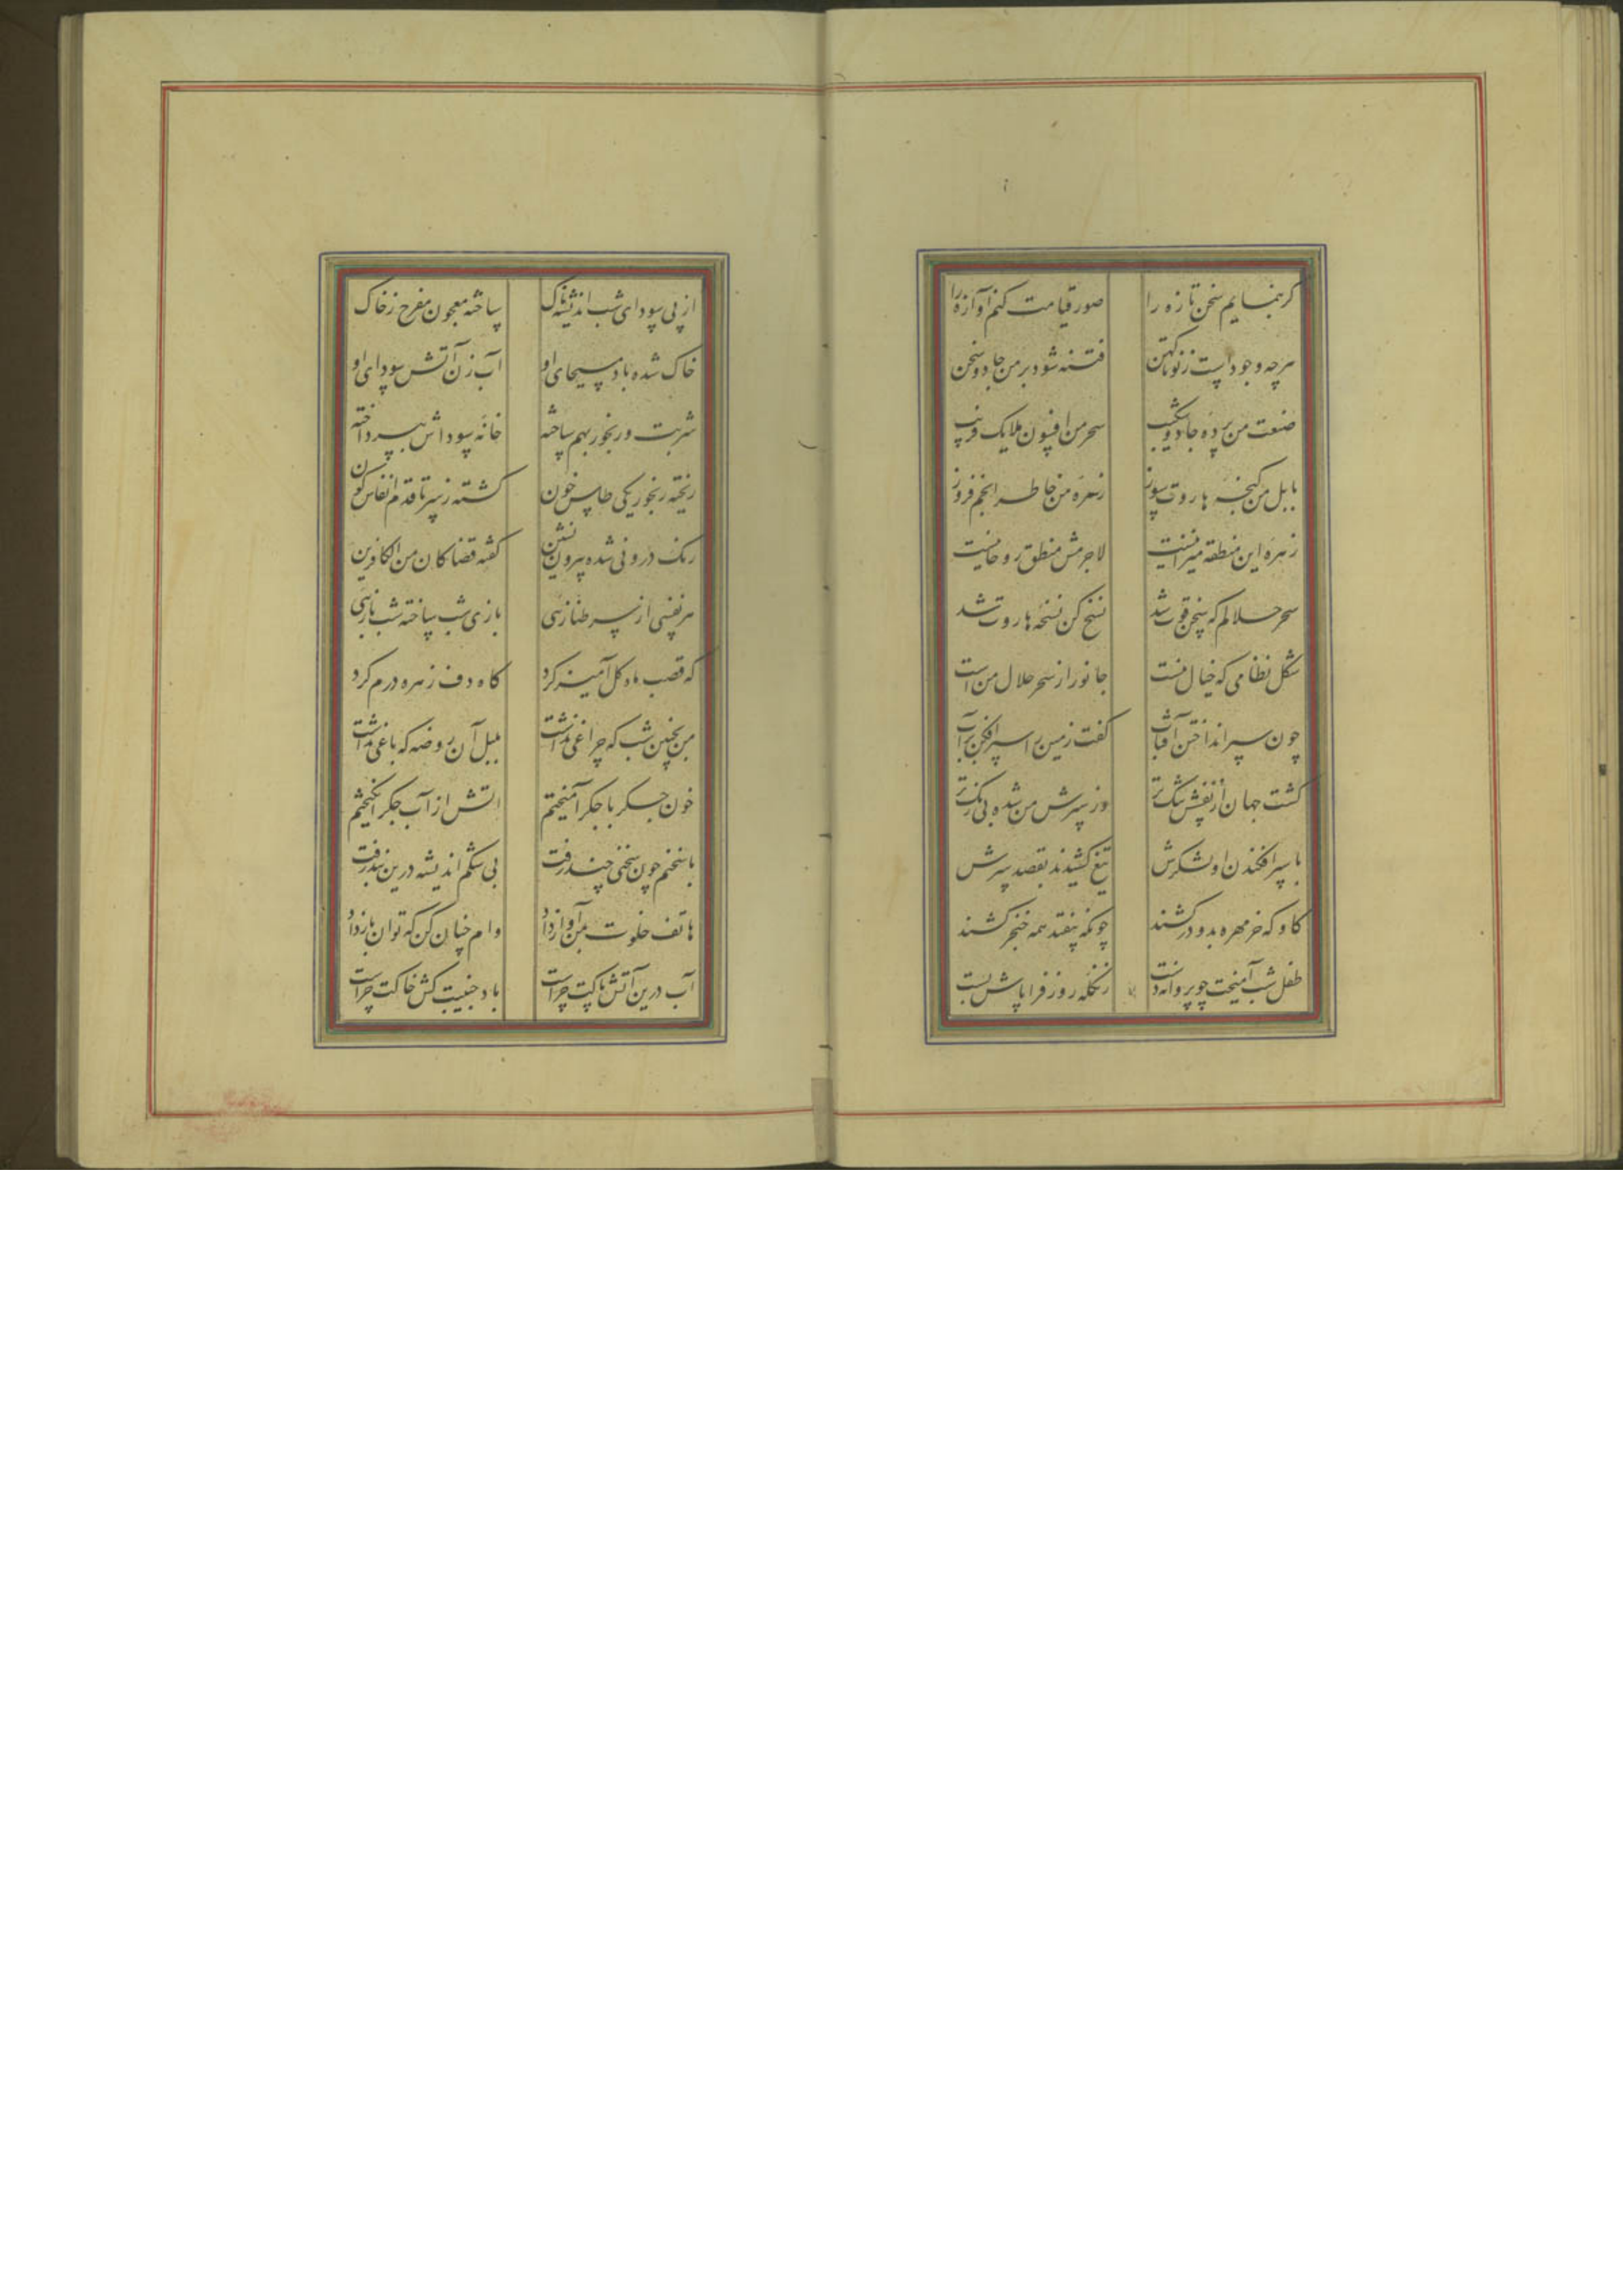 گر بنمایم سخن تازه را
صور قیامت کنم آوازه را
هرچه وجود است ز نو تا کهن
فتنه شود بر من جادو سخن
صنعت من برده ز جادو شکیب
سحر من افسون ملایک فریب
بابل من گنجه هاروت سوز
زهره من خاطر انجم فروز
زهره این منطقه میزانیست
لاجرمش منطق روحانیست
سحر حلالم که سخن قوت شد
نسخ کن نسخه هاروت شد
شکل نظامی که خیال منست
جانور از سحر حلال من است
چون سپر انداختن آفتاب
گفت زمین را سپر افکن بر آب
گشت جهان از نفسش تنگ تر
وز سپرش من شده بی رنگ تر
با سپر افکندن او لشکرش
تیغ کشیدند بقصد سرش
گاو که خرمهره بدو درکشند
چونکه بیفتد همه خنجر کشند
طفل شب آمیخت چو پروانه دست
زنگله روز فرا پاش بست
از پی سودای شب اندیشه ناک
ساخته معجون مفرح ز خاک
خاک شده باد مسیحای او
آب زن آتش سودای او
شربت و رنجور بهم ساخته
خانه سوداش بپرداخته
ریخته رنجور یکی طاس خون
گشته ز سر تا قدم انفاس گون
رنگ درونی شده بیرون نشین
گفته قضا کان من الکافرین
هر نفسی از سر طنازیی
بازی شب ساخته شب بازیی
که قصب ماه گل آمیز کرد
گاه دف زهره درم کرد
من بچنین شب که چراغی نداشت
بلبل آن روضه که باغی نداشت
خون جگر با جگر آمیختم
اتش از آب جگر انگیختم
با سخنم چون سخنی چند رفت
بی شکم اندیشه درین بند رفت
هاتف خلوت بمن آواز داد
وام چنان کن که توان باز داد
آب درین آتش پاکت چراست
باد جنیبت کش خاکت چراست